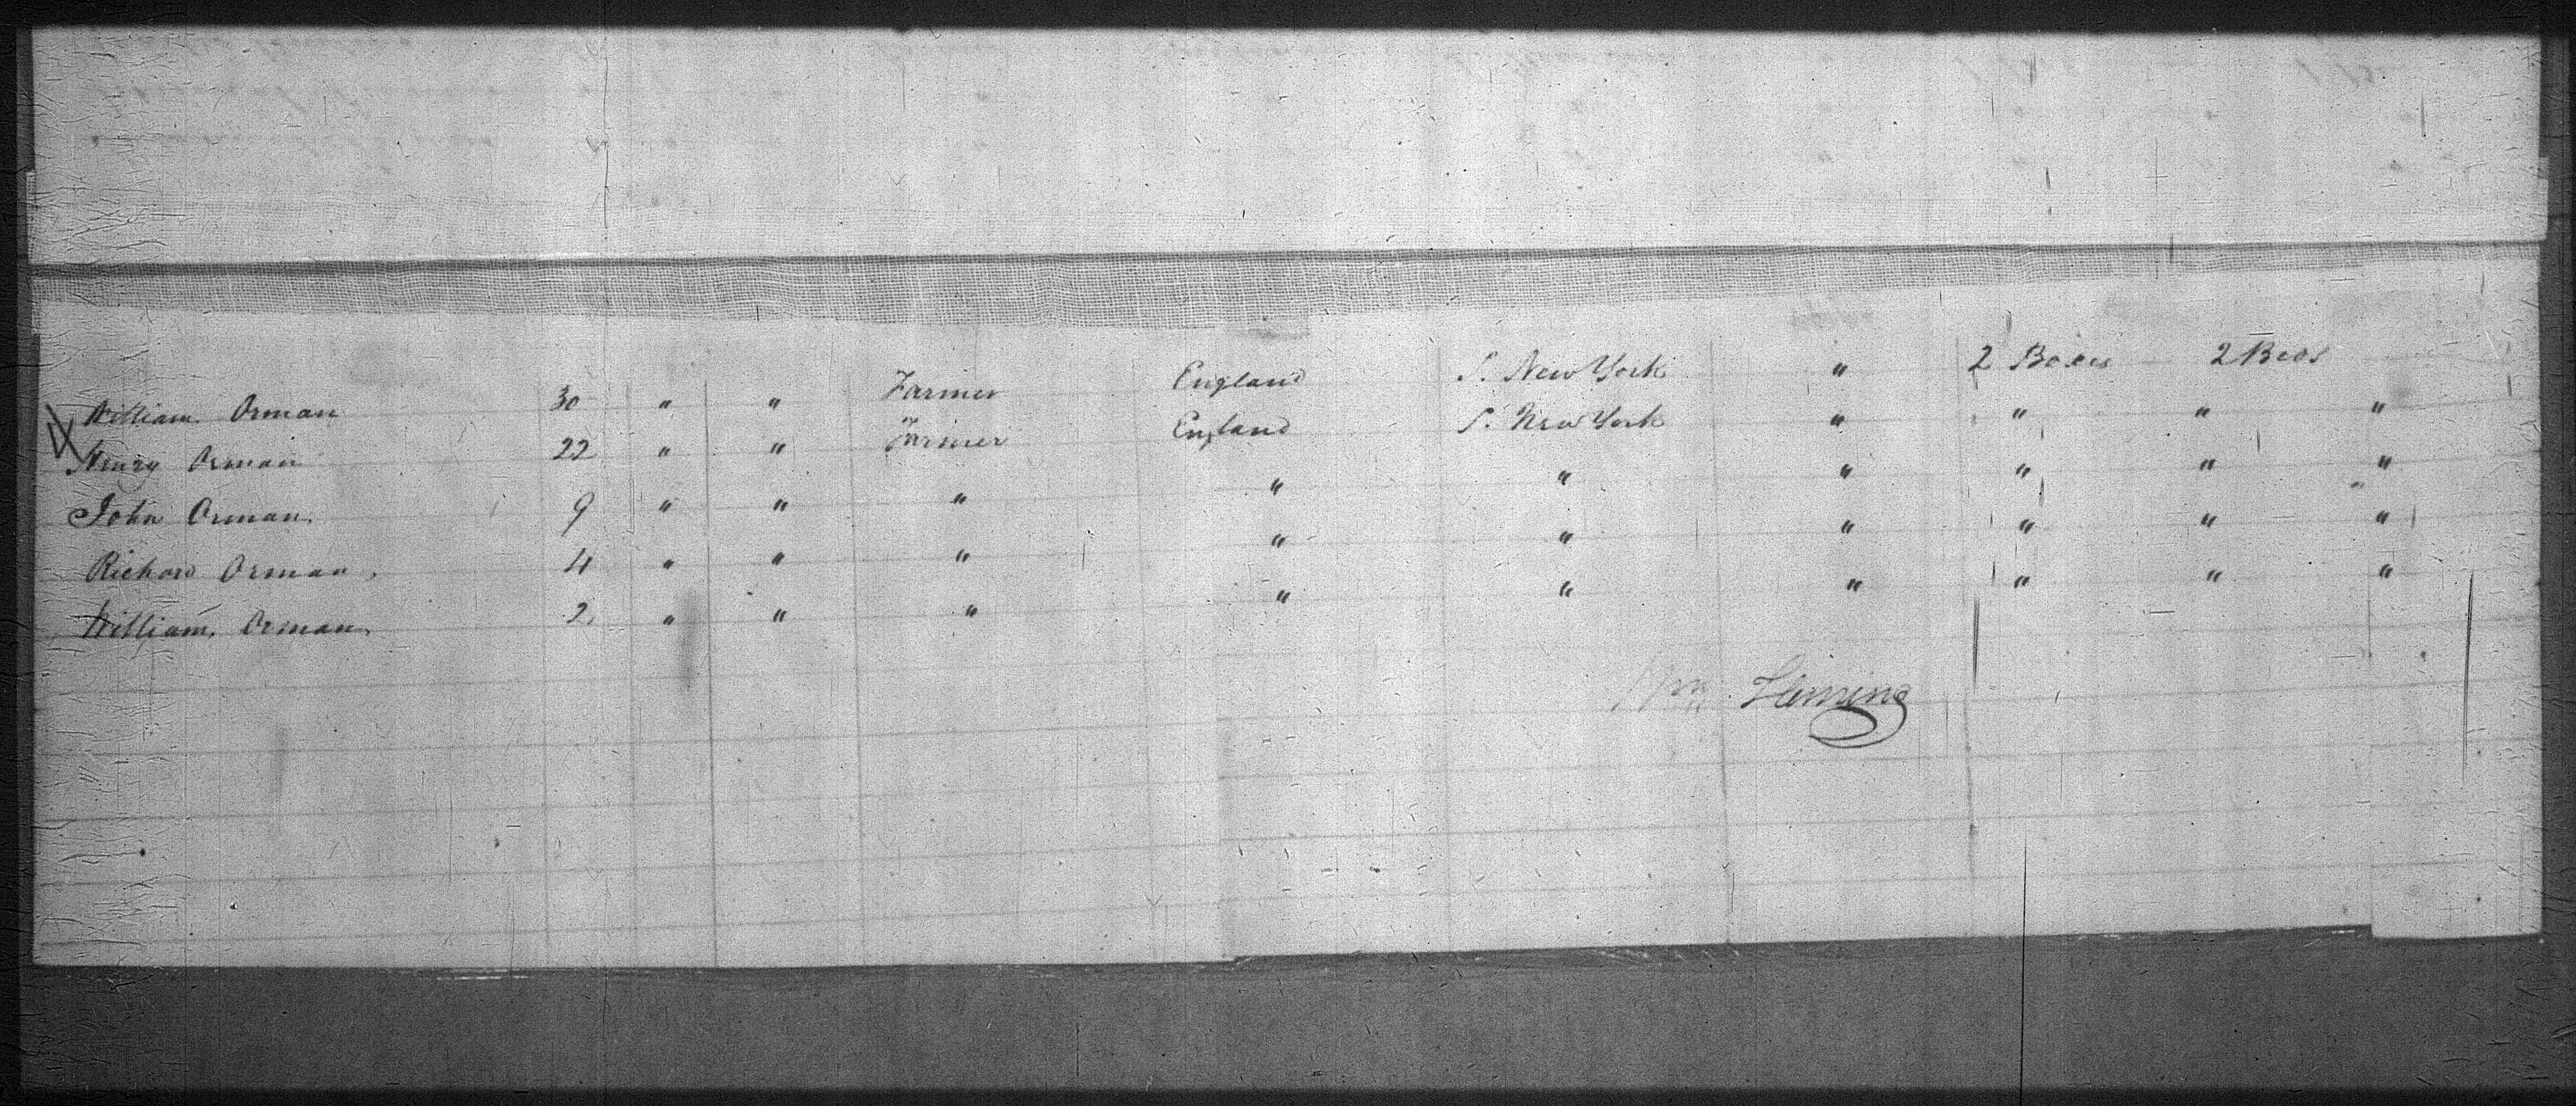 William Orman 30 " " Farmer England S. New York " 2 Boxes 2 Beds
Henry Orman 22 " " Farmer England S. New York " " " "
John Orman. 9 " " " " " " " " "
Richard Orman, 4 " " " " " " " " "
William, Orman, 2 " " " " " " " " "
Wm. Fleming